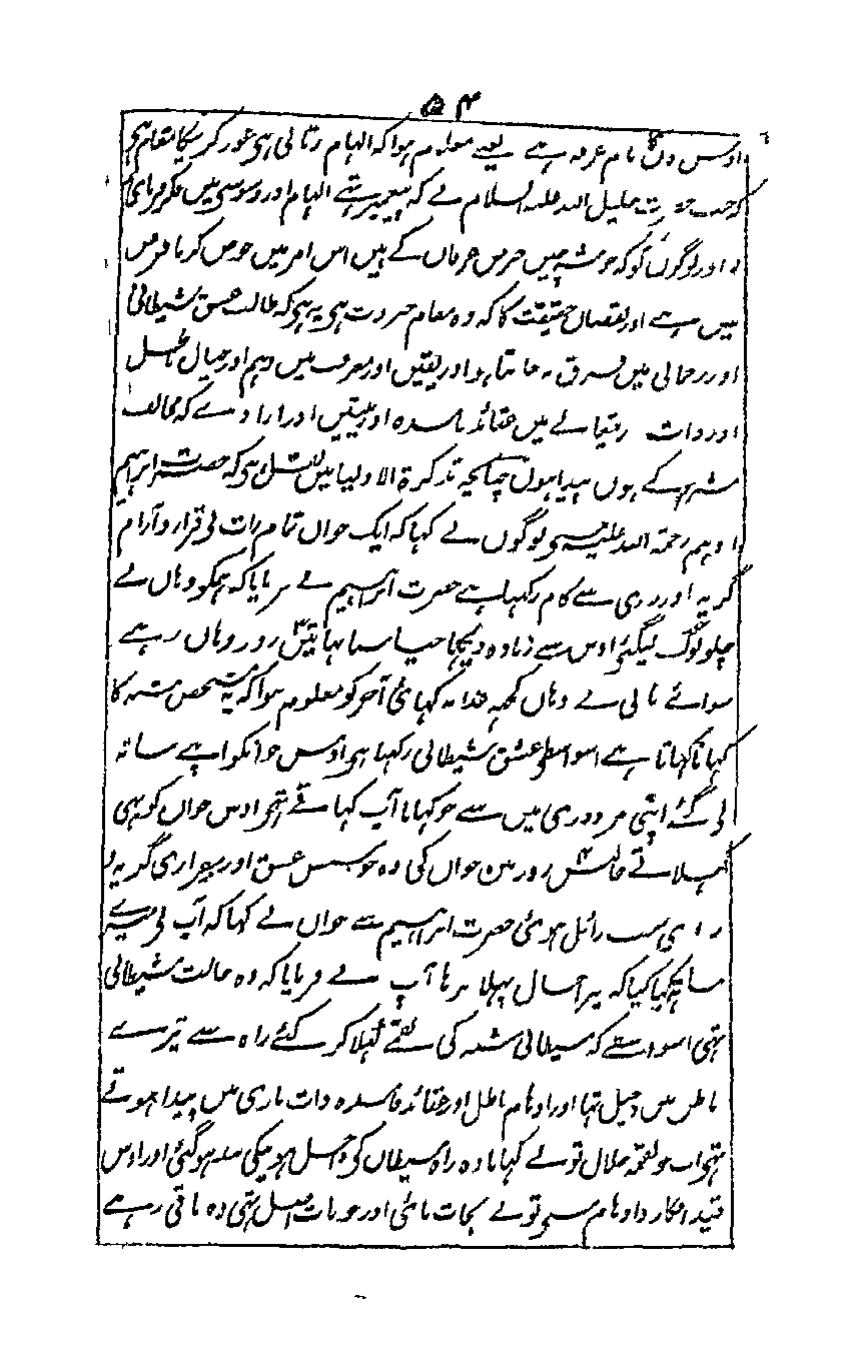 ۵۴
اوس دن کا نام عرفہ ہے یعنے معلوم ہوا کہ الہام ربانی ہی غور کرنیکا مقام ہی
کہ جب حضرت خلیل اللہ علیہ السلام نے کہ پیغمبر تھے الہام اور وسوسی میں فکر فرمائی
اور لوگوں کو کہ خوشہ چین خرمن عرفان کے ہیں اس امر میں خوض کرنا فرض
عین ہے اور نقصان حقیقت کا کہ وہ مقام ضرورت ہی یہ ہی کہ طالب عشق شیطانی
اور رحمانی میں فرق نہ جانتا ہو اور یقین اور معرفت میں وہم اور خیال باطل
اور ذات ربتعالے میں عقائد فاسدہ اور نیتیں اور ارادے کہ مخالف
شرع کے ہوں پیدا ہوں چنانچہ تذکرۃ الاولیا میں نقل ہی کہ حضرت ابراہیم
ادہم رحمۃ اللہ علیہ سی لوگوں نے کہا کہ ایک جوان تمام رات بی قرار و آرام
گریہ اور زاری سے کام رکھتا ہے حضرت ابراہیم نے فرمایا کہ ہمکو وہاں لے
چلو لوگ لیگئی اوس سے زیادہ دیکھا جیسا سنا تھا تین روز وہاں رہے
سوائے پانی کے وہاں کچھ غذا نہ کہائی آخر کو معلوم ہوا کہ یہ شخص شبہ کا
کہانا کہاتا ہے اسواسطے عشق شیطانی رکھتا ہی اوس جوانکو اپنے ساتہ
لی گئے اپنی مزدوری میں سے جو کہانا آپ کہاتے تھی اوس جوان کو بھی
کہلاتے چالیس روز میں جوان کی وہ جوشش عشق اور بیقراری گریہ و
زاری سب زائل ہوئی حضرت ابراہیم سے جوان نے کہا کہ آپ نی میرے
ساتھ کیا کیا کہ میرا حال پہلا نرہا آپ نے فرمایا کہ وہ حالت شیطانی
تہی اسواسطے کہ شیطانی شبہ کی لقمے کہلا کر کے راہ سے تیرے
باطن میں دخیل تہا اور اوہام باطل اور عقائد فاسدہ ذات باری میں پیدا ہوتے
تہی اب جو لقمہ حلال تونے کہایا وہ راہ شیطان کی دخل ہونیکی بند ہوگئی اور اوس
قید افکار و اوہام سے تونے نجات پائی اور جو بات اصل تہی وہ باقی رہے